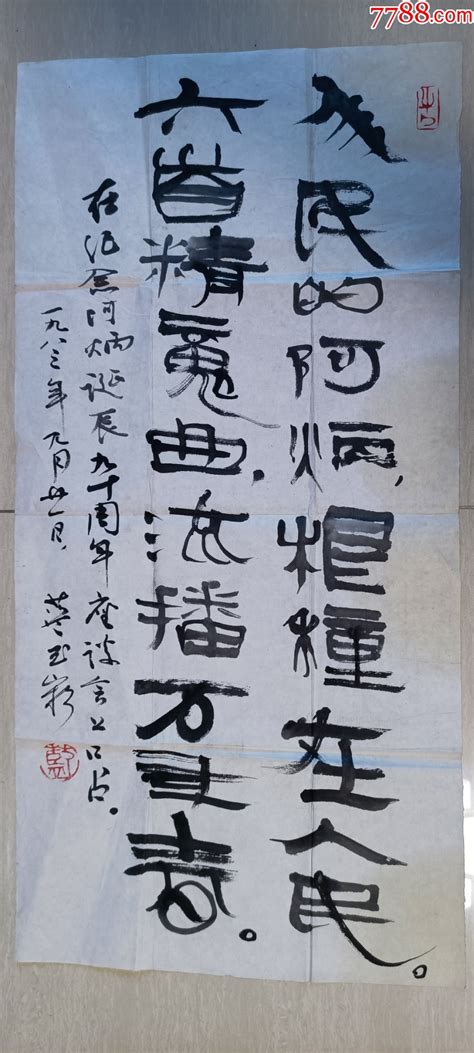 7788.com
人民的阿炳，根種在人民。
六首精魂曲，流播万年春。
在纪念阿炳诞辰九十周年座谈会上口占。
一九八三年九月廿一日，